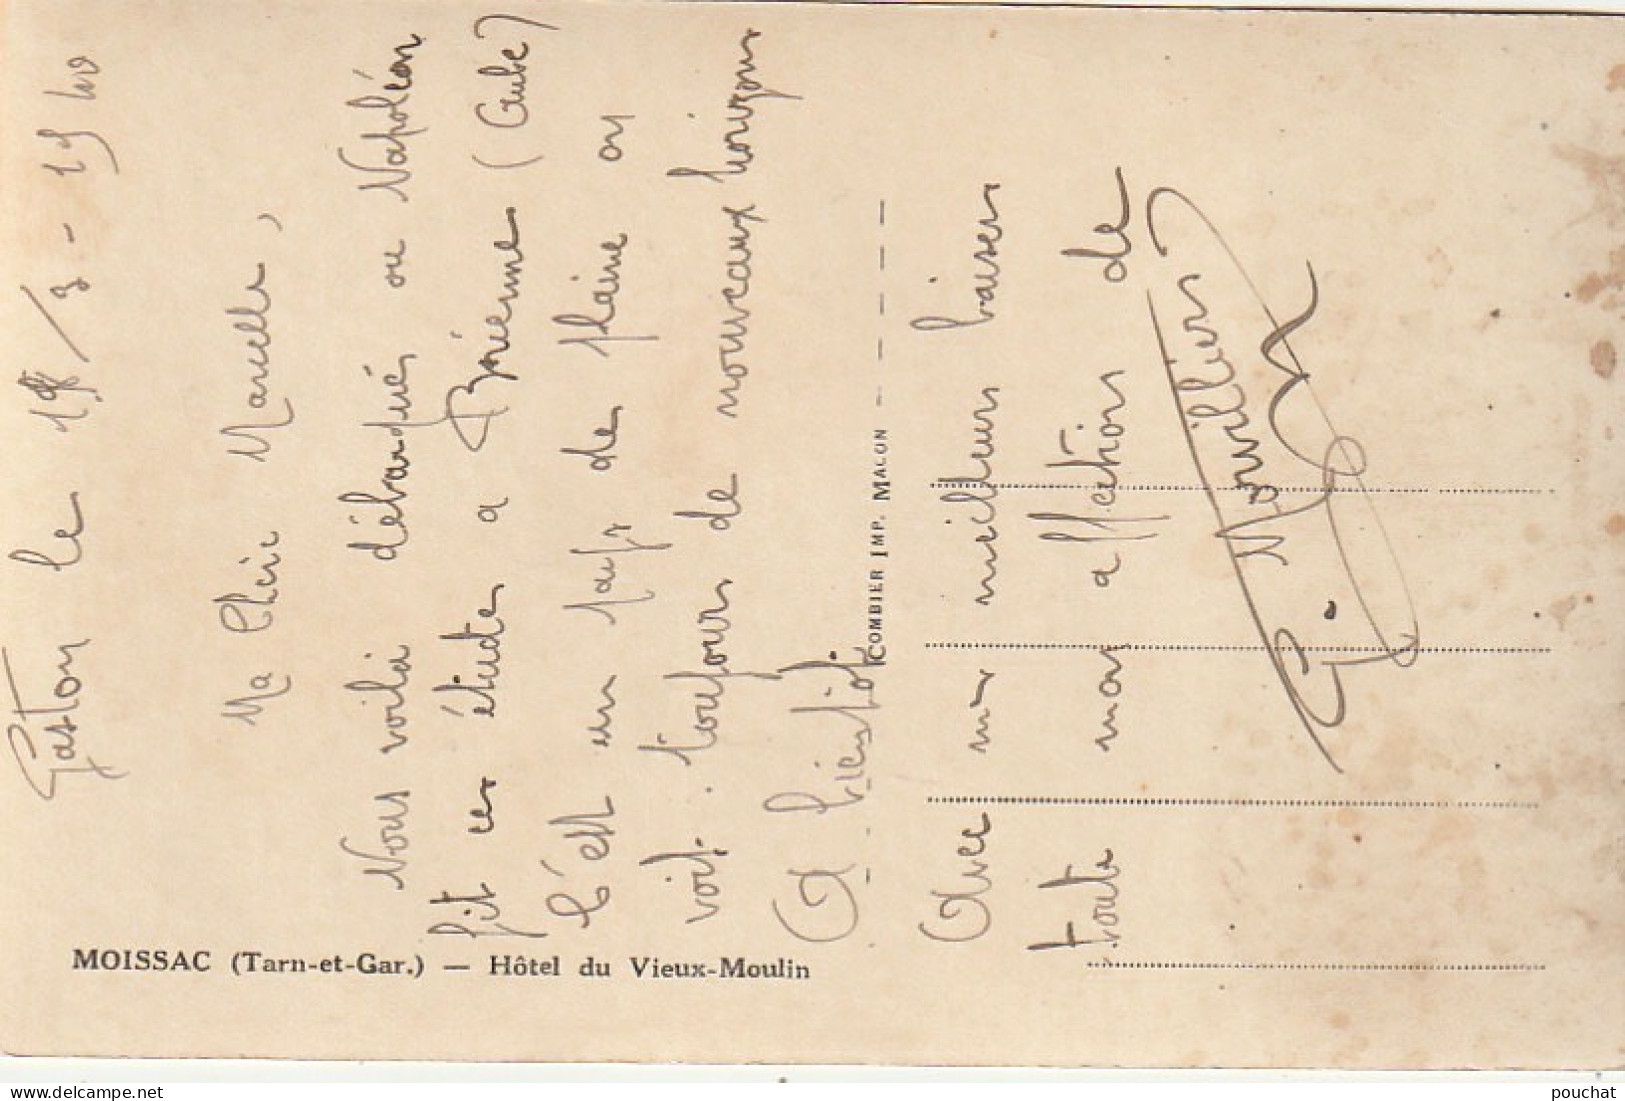 Gaston le 18/3-1940
Ma Chère Marcelle,
Nous voilà débarqués ou Napoléon
fit ces études a Brienne (Aube)
C'est un pays de plaine on
voit toujours de nouveaux horizons
A bientôt.
Avec mes meilleurs baisers
toute mon affection de
G. Mouillion
MOISSAC (Tarn-et-Gar.) — Hôtel du Vieux-Moulin
COMBIER IMP. MACON
pouchat